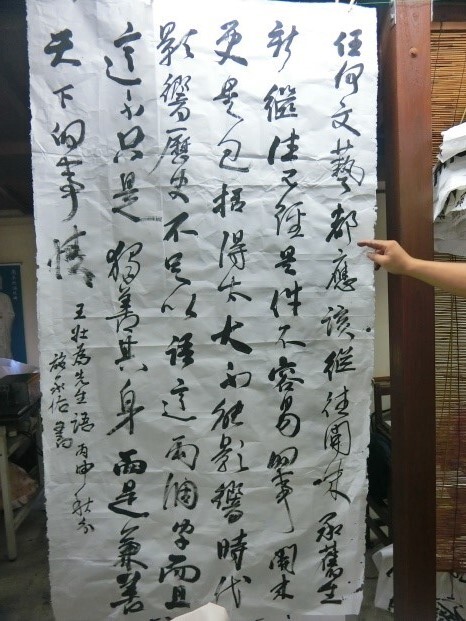 任何文藝都應該繼往開來承舊生
新繼往已經是件不容易的事開來
更是包括得太大不能影響時代
影響歷史不足以語這兩個字而且
這不只是獨善其身而是兼善
天下的事情
王壯為先生語丙申秋分
書